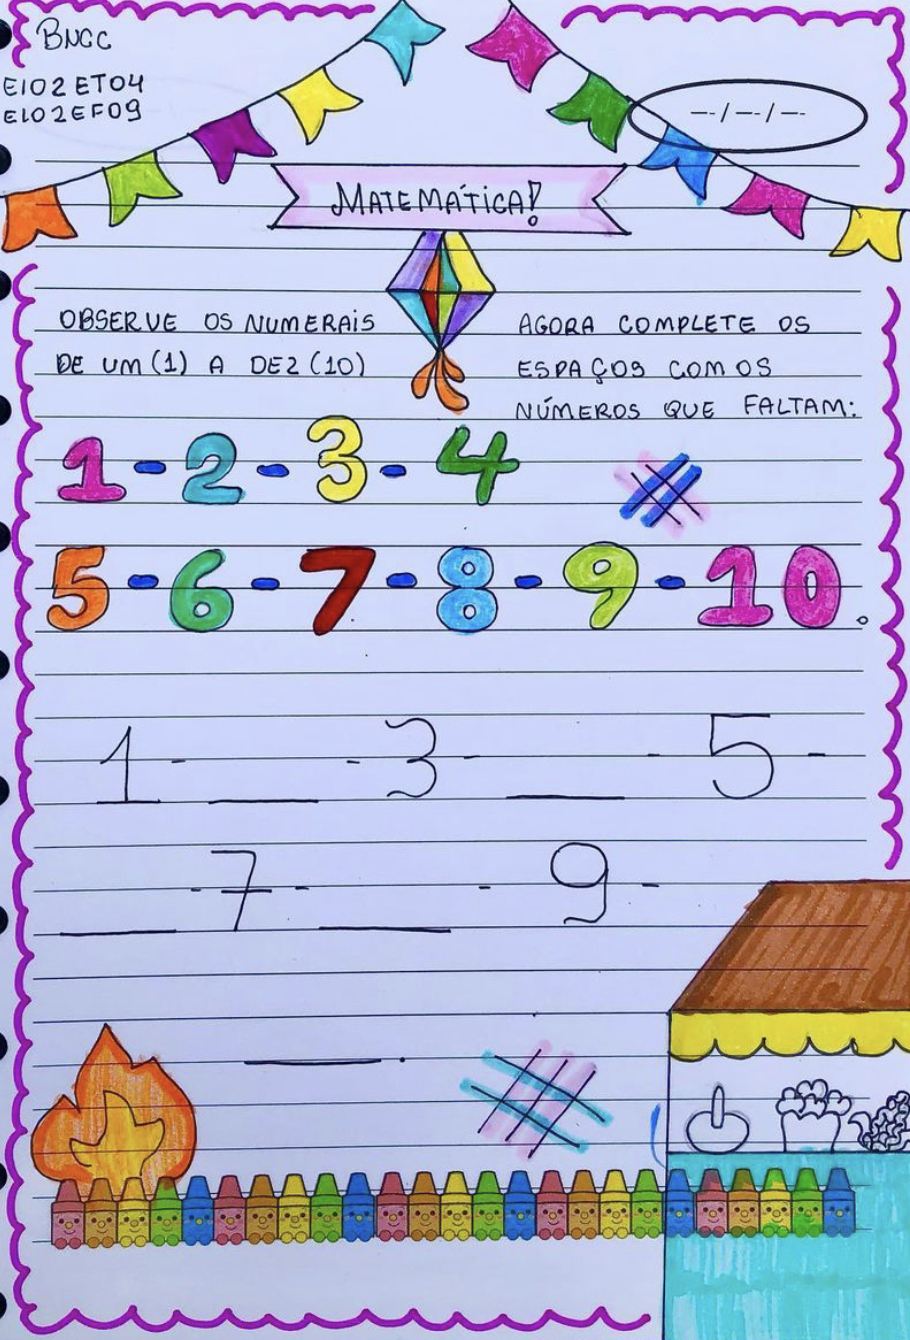 BNCC
EI02ET04
EI02EF09
--/--/--
MATEMÁTICA!
OBSERVE OS NUMERAIS
DE UM (1) A DEZ (10)
AGORA COMPLETE OS
ESPAÇOS COM OS
NÚMEROS QUE FALTAM:
1 - 2 - 3 - 4
5 - 6 - 7 - 8 - 9 - 10.
1 - ___ - 3 - ___ - 5 -
___ - 7 - ___ - 9 -
___.